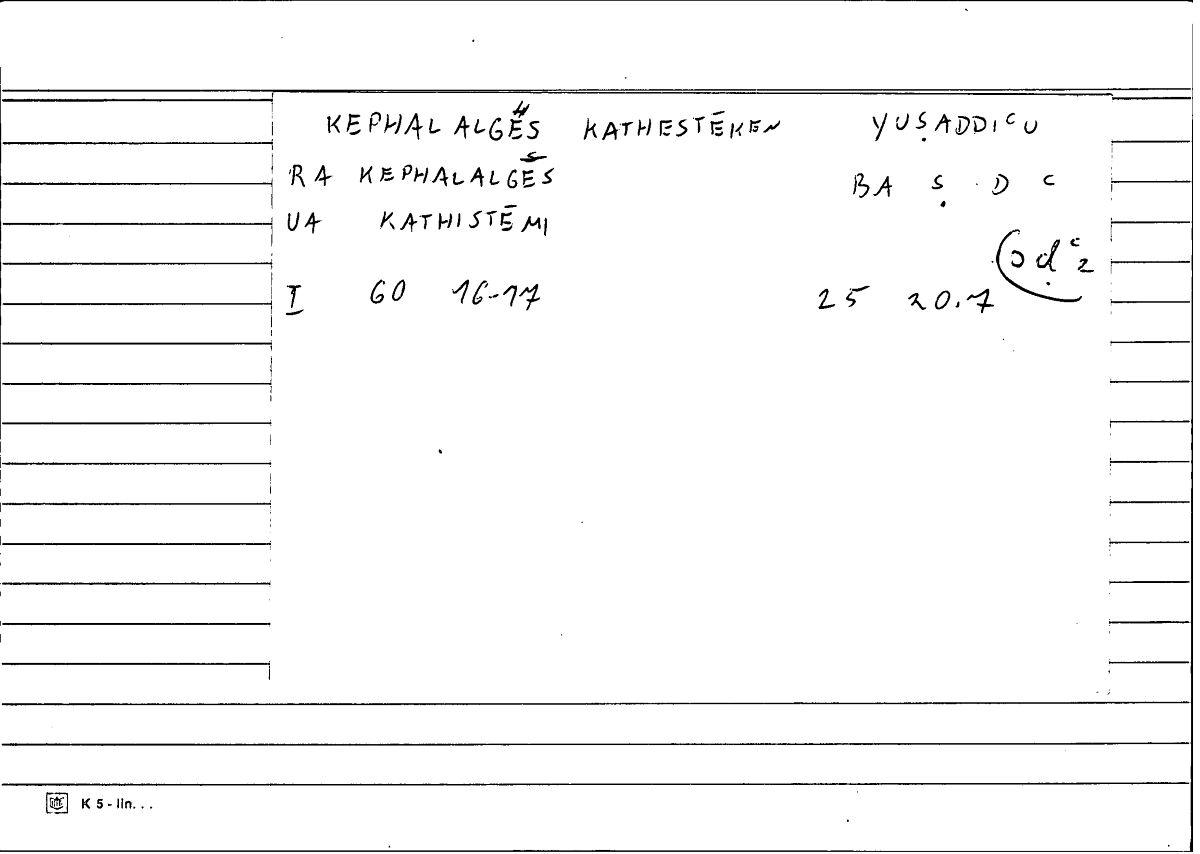 KEPHALALGĒS KATHESTĒKEN YUṢADDIᶜU
RA KEPHALALGĒS BA Ṣ D C
UA KATHISTĒMI
ṣdᶜ2
I 60 16-17 25 20.7
K 5 - lin. . .